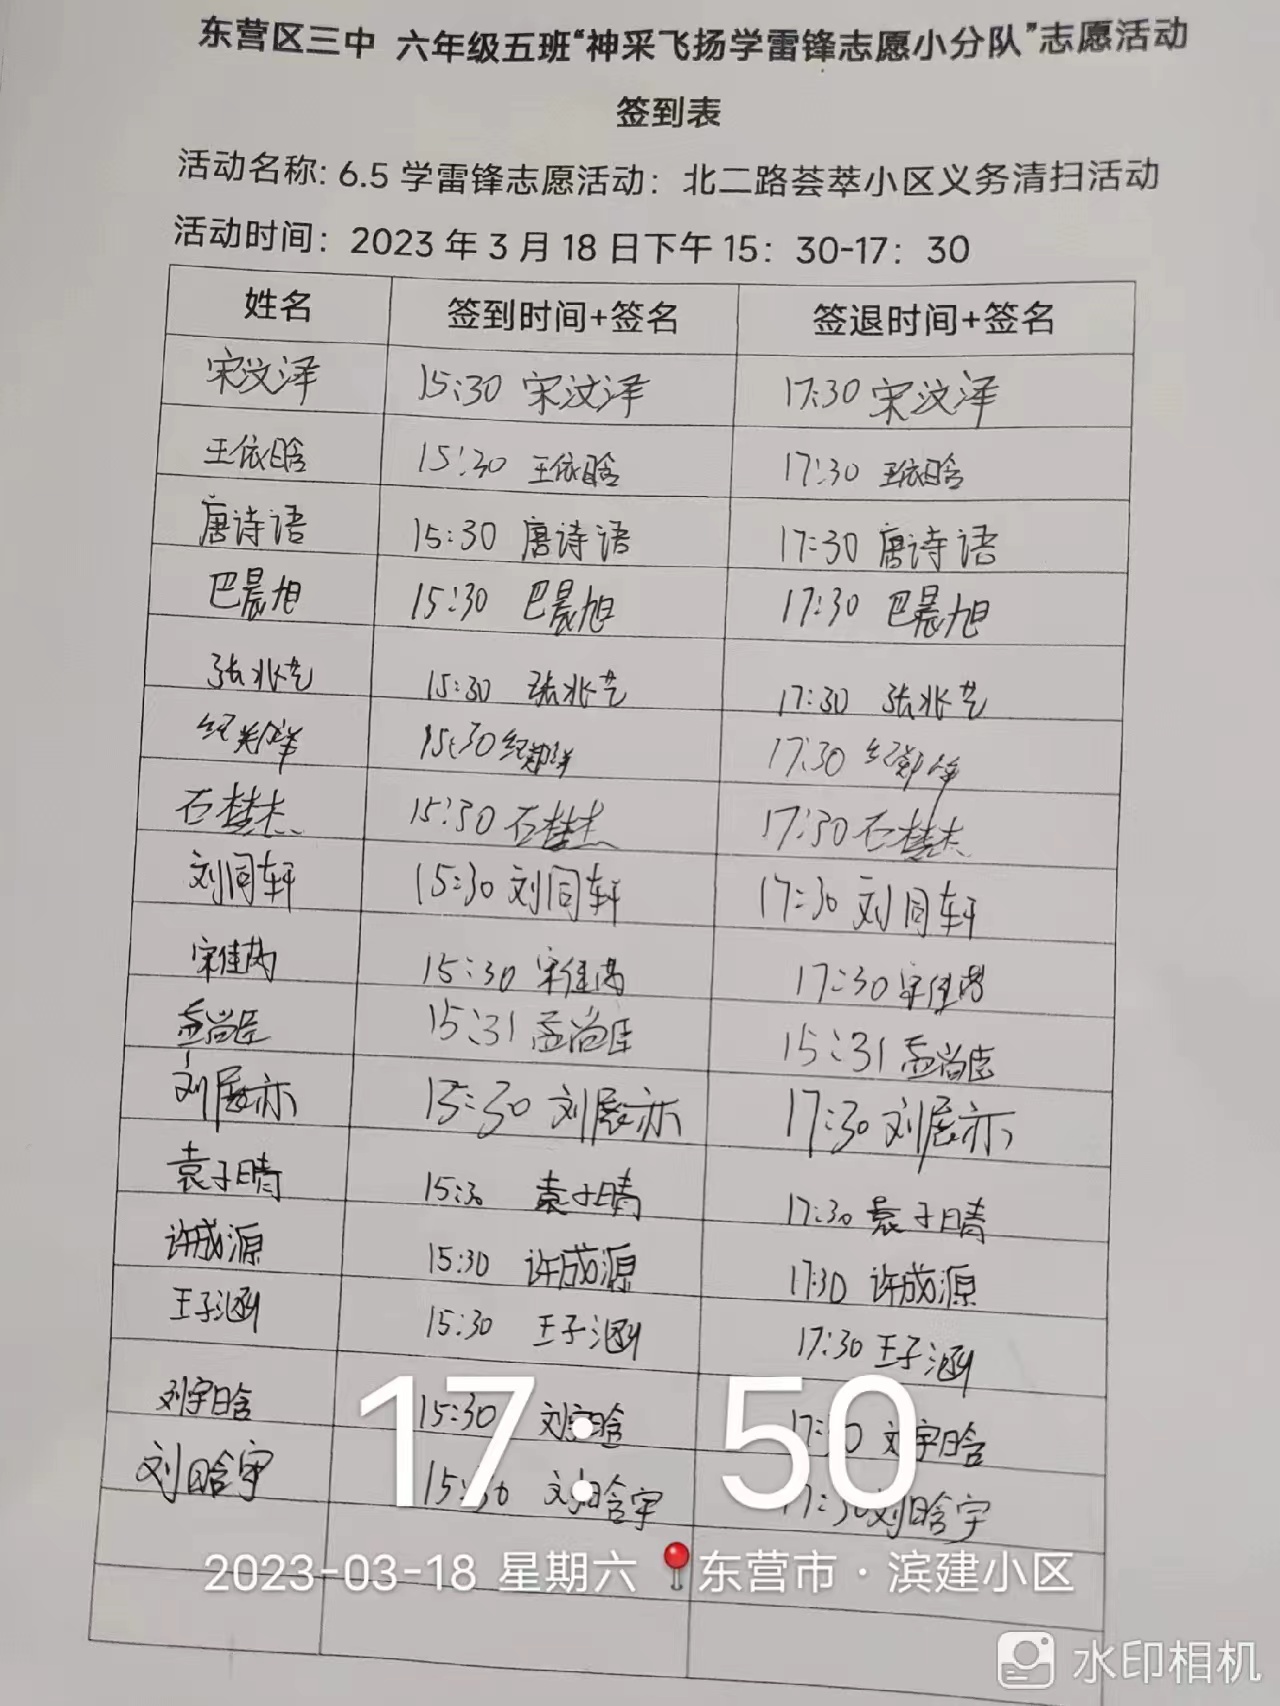 东营区三中 六年级五班“神采飞扬学雷锋志愿小分队”志愿活动
签到表
活动名称: 6.5 学雷锋志愿活动：北二路荟萃小区义务清扫活动
活动时间：2023 年 3 月 18 日下午 15：30-17：30
姓名 签到时间+签名 签退时间+签名
宋汶泽 15:30 宋汶泽 17:30 宋汶泽
王依晗 15:30 王依晗 17:30 王依晗
唐诗语 15:30 唐诗语 17:30 唐诗语
巴晨旭 15:30 巴晨旭 17:30 巴晨旭
张兆艺 15:30 张兆艺 17:30 张兆艺
纪郑锋 15:30 纪郑锋 17:30 纪郑锋
石楚杰 15:30 石楚杰 17:30 石楚杰
刘同轩 15:30 刘同轩 17:30 刘同轩
宋佳芮 15:30 宋佳芮 17:30 宋佳芮
孟尚臣 15:31 孟尚臣 15:31 孟尚臣
刘展亦 15:30 刘展亦 17:30 刘展亦
袁子晴 15:30 袁子晴 17:30 袁子晴
许成源 15:30 许成源 17:30 许成源
王子涵 15:30 王子涵 17:30 王子涵
刘宇晗 15:30 刘宇晗 17:30 刘宇晗
刘晗宇 15:30 刘晗宇 17:30 刘晗宇
17:50
2023-03-18 星期六 东营市·滨建小区
水印相机